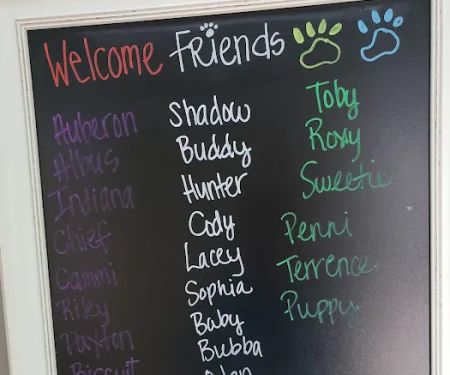 Welcome Friends
Auberon
Albus
Indiana
Chief
Cammi
Riley
Paxton
Biscuit
Shadow
Buddy
Hunter
Cody
Lacey
Sophia
Baby
Bubba
Toby
Roxy
Sweetie
Penni
Terrence
Puppy